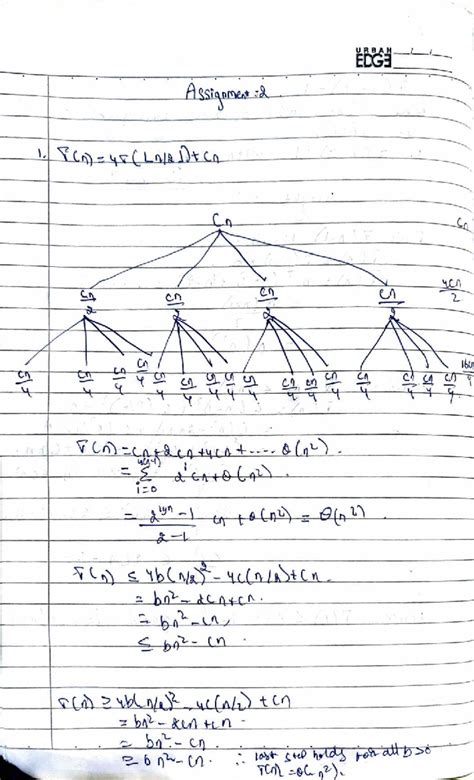 URBAN
EDGE
Assignment :2
1. T(n) = 4T(⌊n/2⌋) + Cn
Cn Cn
Cn/2 Cn/2 Cn/2 Cn/2 4Cn/2
Cn/4 Cn/4 Cn/4 Cn/4 Cn/4 Cn/4 Cn/4 Cn/4 Cn/4 Cn/4 Cn/4 Cn/4 Cn/4 Cn/4 Cn/4 Cn/4
T(n) = Cn + 2Cn + 4Cn + ..... θ(n²)
= Σ i=0 2^i Cn + θ(n²)
= (2^lgn - 1)/(2 - 1) cn + θ(n²) = θ(n²)
T(n) ≤ 4b(n/2)² - 4c(n/2) + cn
= bn² - 2cn + cn.
= bn² - cn,
≤ bn² - cn.
T(n) ≥ 4b(n/2)² - 4c(n/2) + cn
= bn² - 2cn + cn.
= bn² - cn.
≥ bn² - cn. ∴ last step holds for all b>0
T(n) = θ(n²).